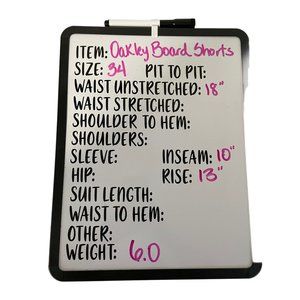 ITEM: Oakley Board Shorts
SIZE: 34 PIT TO PIT:
WAIST UNSTRETCHED: 18"
WAIST STRETCHED:
SHOULDER TO HEM:
SHOULDERS:
SLEEVE: INSEAM: 10"
HIP: RISE: 13"
SUIT LENGTH:
WAIST TO HEM:
OTHER:
WEIGHT: 6.0